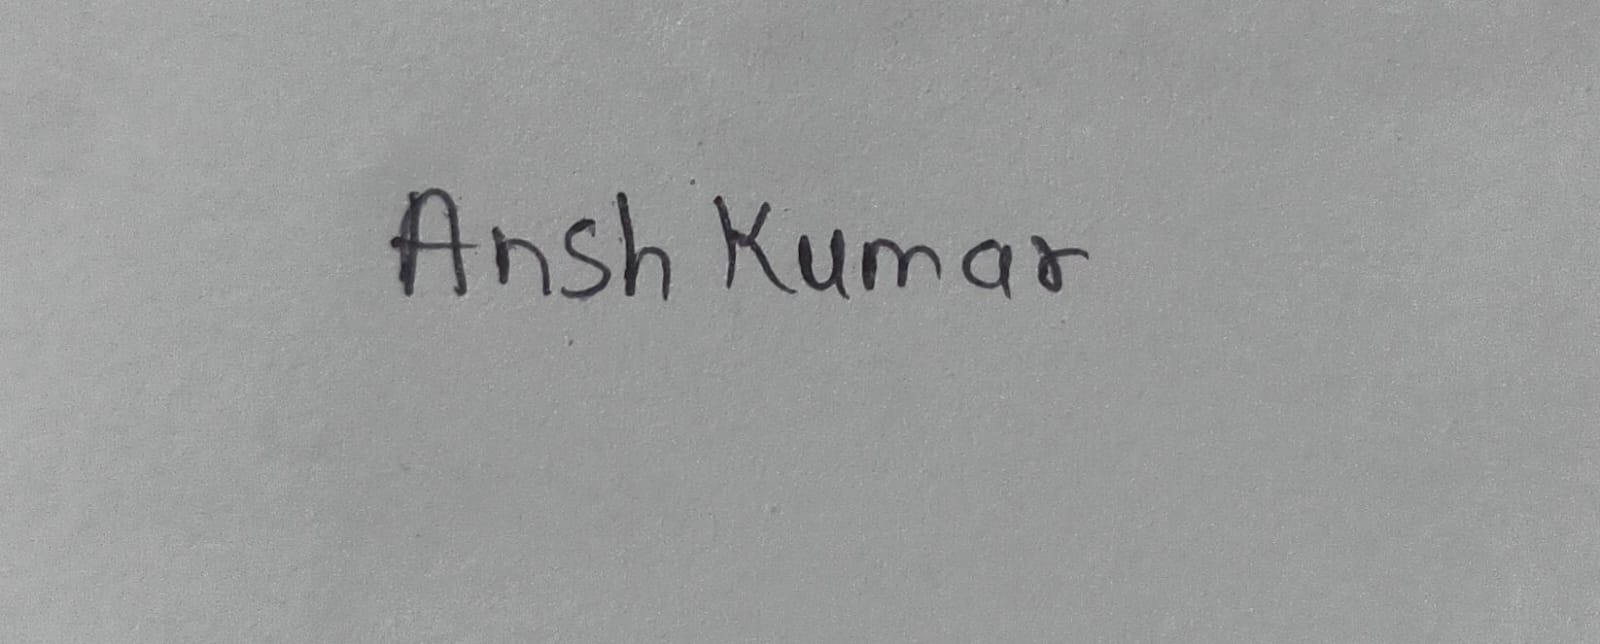 Ansh Kumar